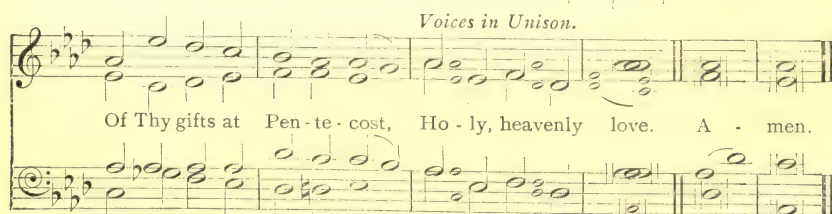 Voices in Unison.
Of Thy gifts at Pen - te - cost, Ho - ly, heavenly love. A - men.